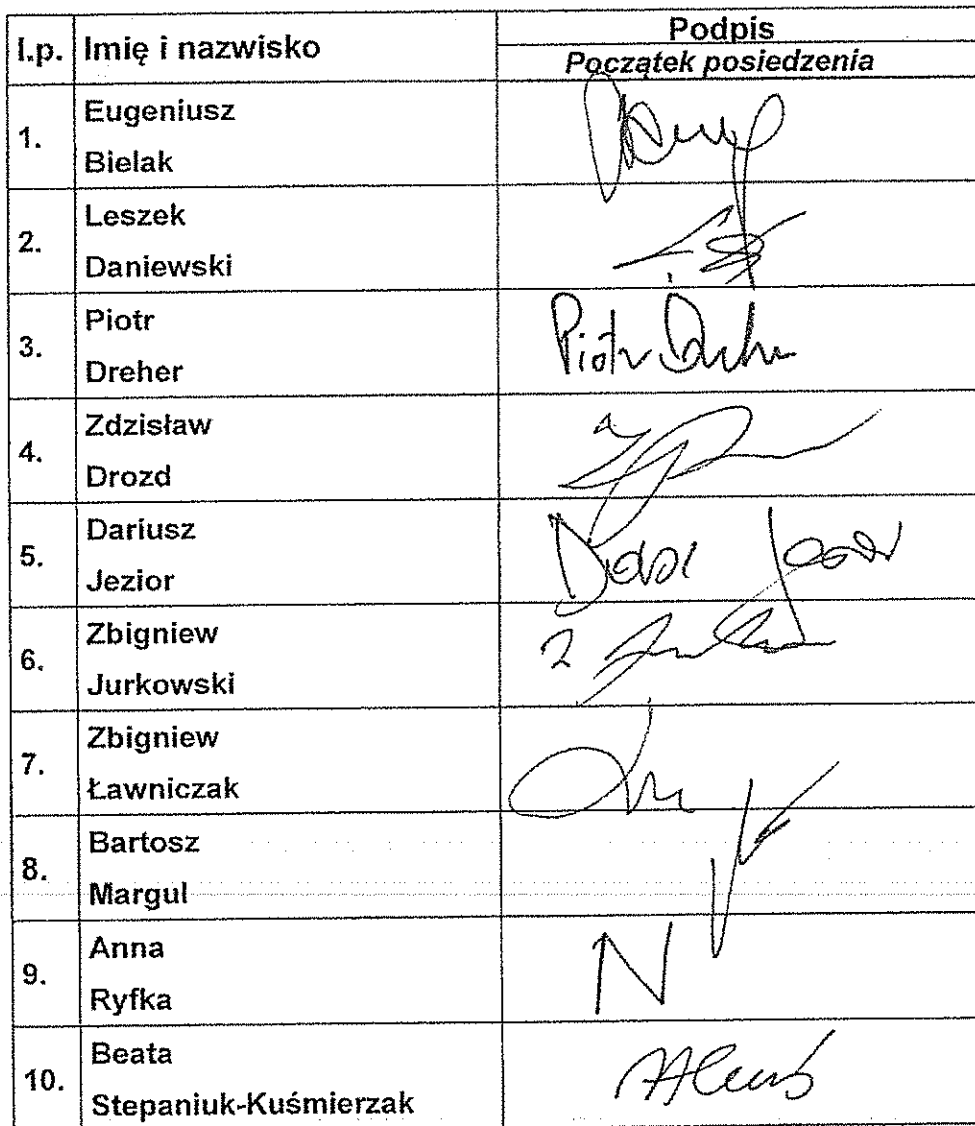 l.p. Imię i nazwisko Podpis
Początek posiedzenia
1. Eugeniusz
Bielak
2. Leszek
Daniewski
3. Piotr
Dreher
Piotr Dreher
4. Zdzisław
Drozd
5. Dariusz
Jezior
6. Zbigniew
Jurkowski
7. Zbigniew
Ławniczak
8. Bartosz
Margul
9. Anna
Ryfka
N
10. Beata
Stepaniuk-Kuśmierzak